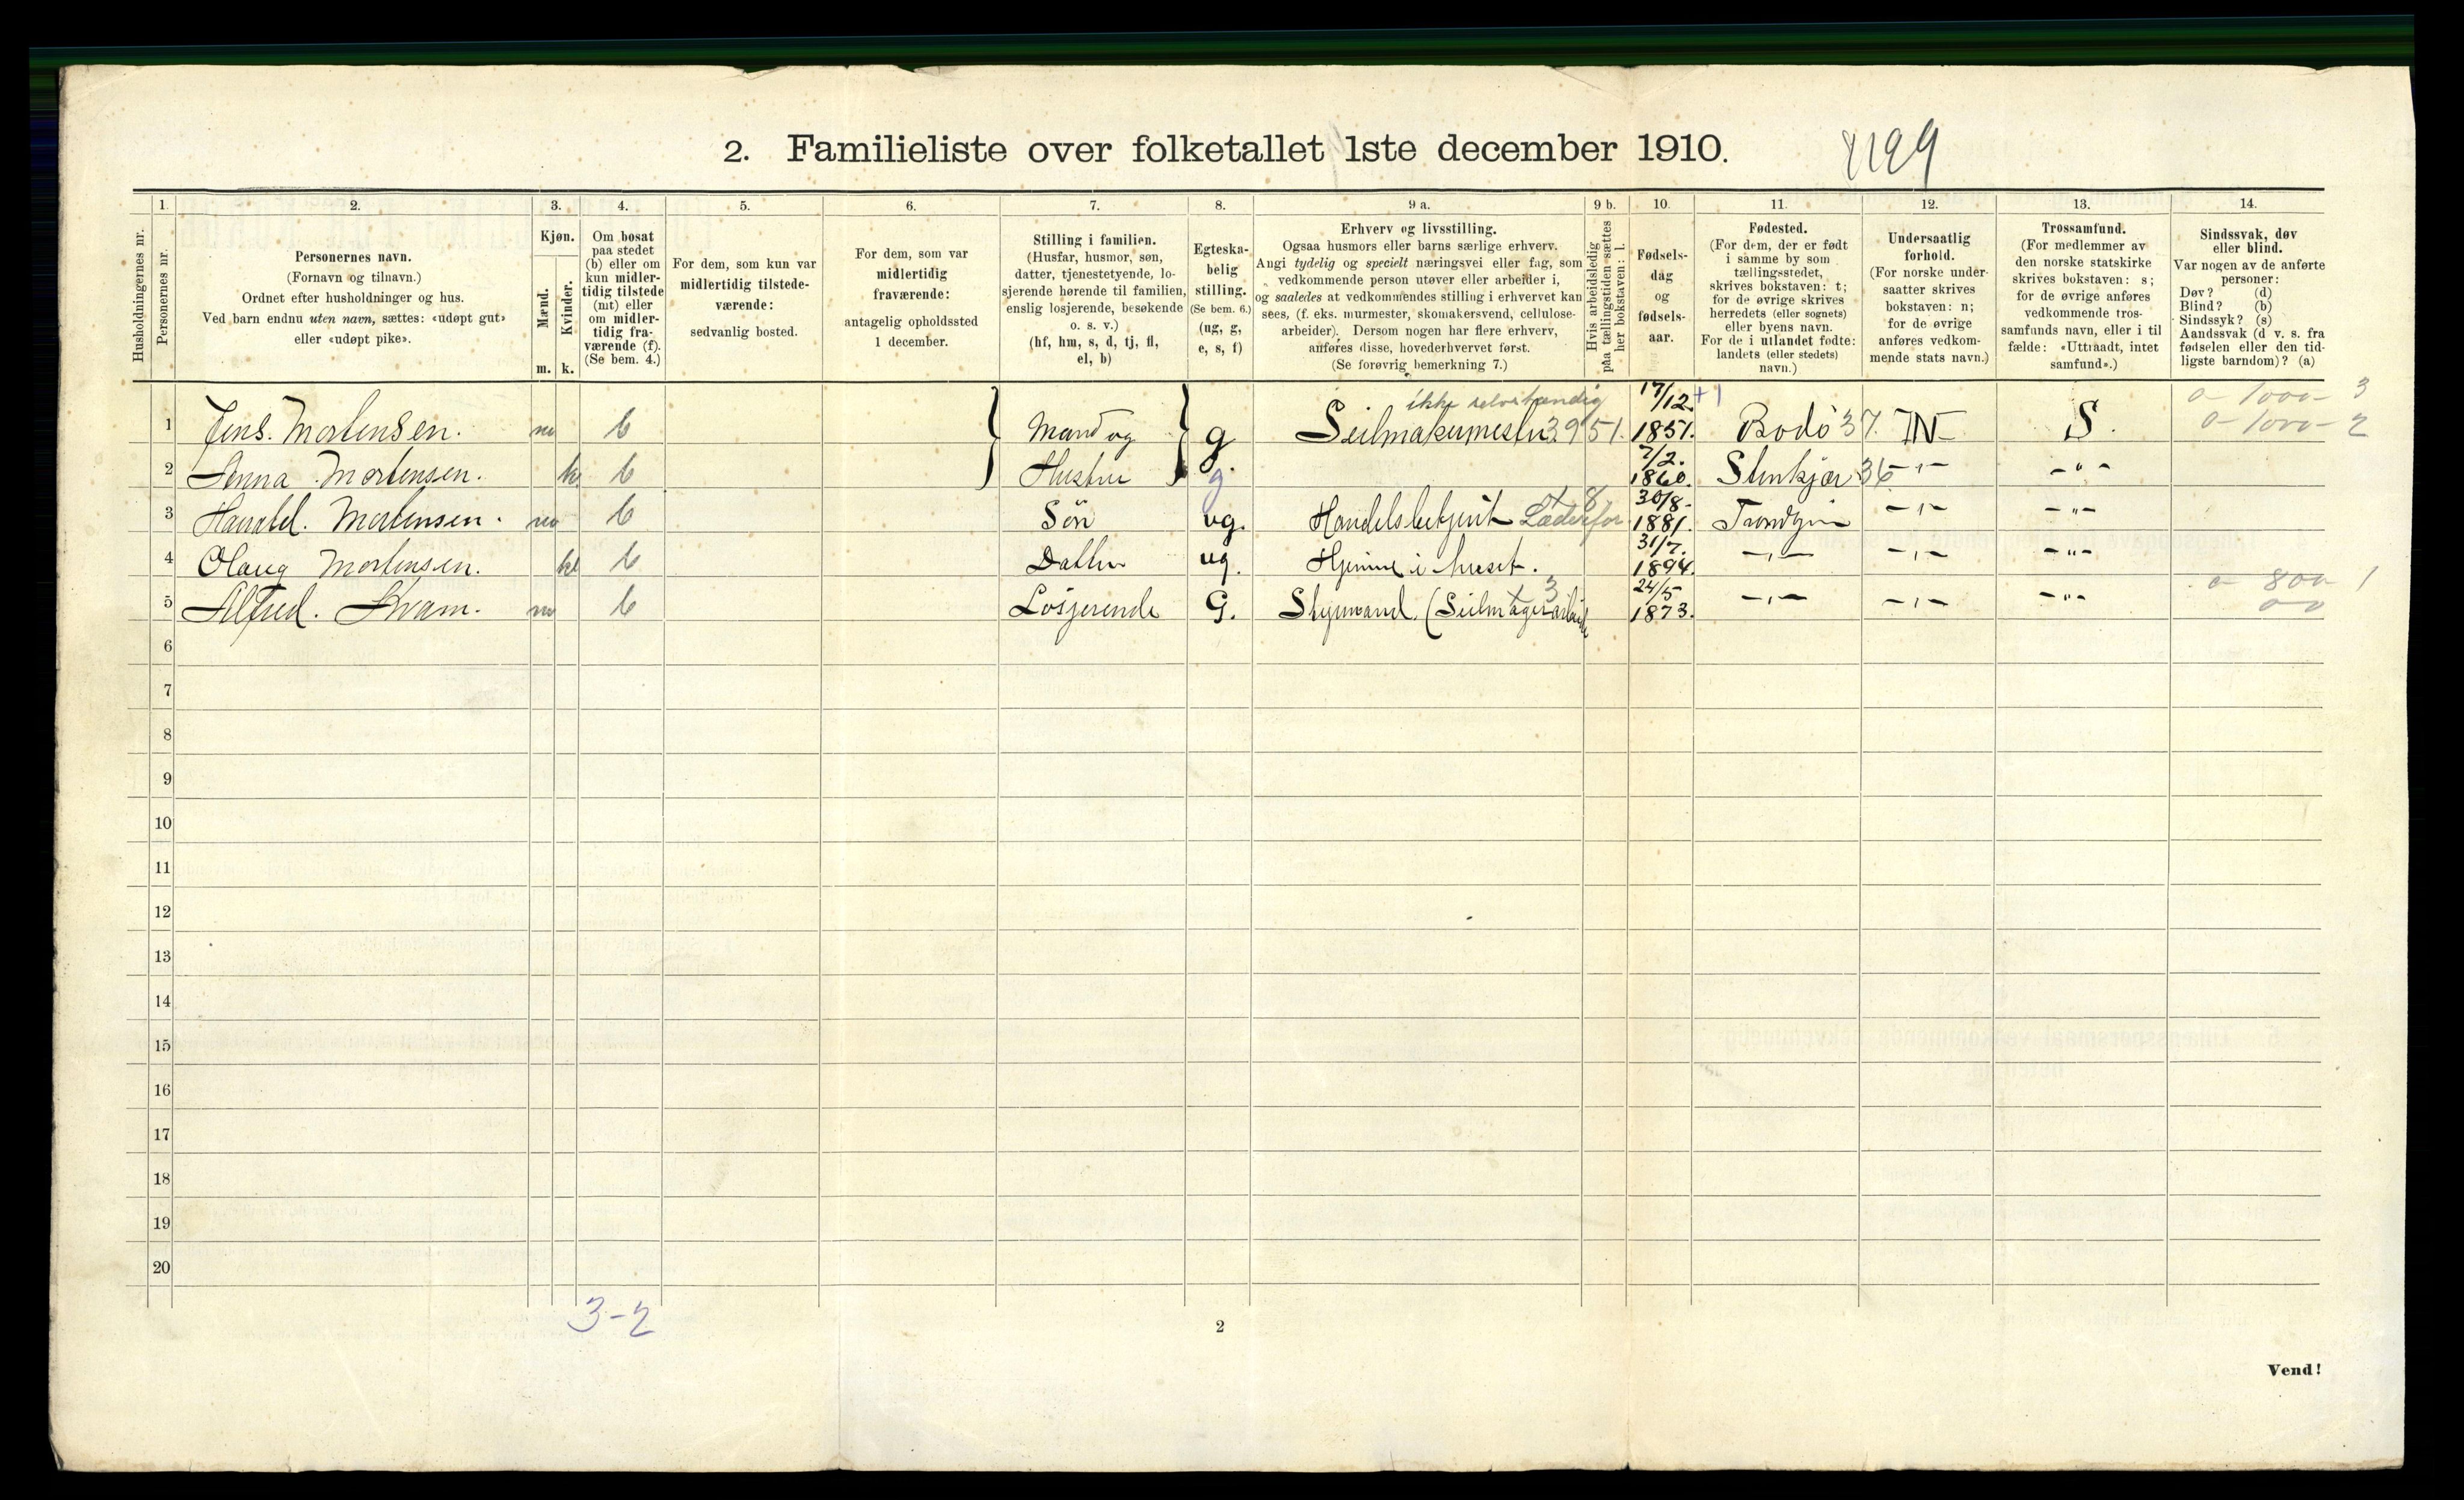 2. Familieliste over folketallet 1ste december 1910.
Husholdningernes nr.
1. Personernes nr.
2. Personernes navn.
(Fornavn og tilnavn.)
Ordnet efter husholdninger og hus.
Ved barn endnu uten navn, sættes: «udøpt gut»
eller «udøpt pike».
3. Kjøn.
Mænd. m.
Kvinder. k.
4. Om bosat
paa stedet
(b) eller om
kun midler-
tidig tilstede
(mt) eller
om midler-
tidig fra-
værende (f).
(Se bem. 4.)
5. For dem, som kun var
midlertidig tilstede-
værende:
sedvanlig bosted.
6. For dem, som var
midlertidig
fraværende:
antagelig opholdssted
1 december.
7. Stilling i familien.
(Husfar, husmor, søn,
datter, tjenestetyende, lo-
sjerende hørende til familien,
enslig losjerende, besøkende
o. s. v.)
(hf, hm, s, d, tj, fl,
el, b)
8. Egteska-
belig
stilling.
(Se bem. 6.)
(ug, g,
e, s, f)
9 a. Erhverv og livsstilling.
Ogsaa husmors eller barns særlige erhverv.
Angi tydelig og specielt næringsvei eller fag, som
vedkommende person utøver eller arbeider i,
og saaledes at vedkommendes stilling i erhvervet kan
sees, (f. eks. murmester, skomakersvend, cellulose-
arbeider). Dersom nogen har flere erhverv,
anføres disse, hovederhvervet først.
(Se forøvrig bemerkning 7.)
9 b. Hvis arbeidsledig
paa tællingstiden sættes
her bokstaven: l.
10. Fødsels-
dag
og
fødsels-
aar.
11. Fødested.
(For dem, der er født
i samme by som
tællingsstedet,
skrives bokstaven: t;
for de øvrige skrives
herredets (eller sognets)
eller byens navn.
For de i utlandet fødte:
landets (eller stedets)
navn.)
12. Undersaatlig
forhold.
(For norske under-
saatter skrives
bokstaven: n;
for de øvrige
anføres vedkom-
mende stats navn.)
13. Trossamfund.
(For medlemmer av
den norske statskirke
skrives bokstaven: s;
for de øvrige anføres
vedkommende tros-
samfunds navn, eller i til
fælde: «Uttraadt, intet
samfund».)
14. Sindssvak, døv
eller blind.
Var nogen av de anførte
personer:
Døv? (d)
Blind? (b)
Sindssyk? (s)
Aandssvak (d v. s. fra
fødselen eller den tid-
ligste barndom)? (a)
1 Jens. Mortensen. m b Mand og g ikke selvstændig Seilmakermester 3951. 17/12. 1851. +1 Bodö 37. N S. 0-1000-3
0-1000-2
2 Anna Mortensen. k b Hustru g 7/2. 1860. Stenkjær 36 -"- -"-
3 Mortensen. m b Sön ug. Handelsbetjent 30/8. 1881. Trondhjem -"- -"-
4 Olaug Mortensen. k b Datter ug. Hjemme i huset. 31/7. 1894. -"- -"- -"-
5 Alfred. Kvam. m b Losjerende G. Styrmand. (Seilmagerarbeide 3 24/5- 1873. -"- -"- -"- 0-800-1
6
7
8
9
10
11
12
13
14
15
16
17
18
19
20
3-2
2
Vend!